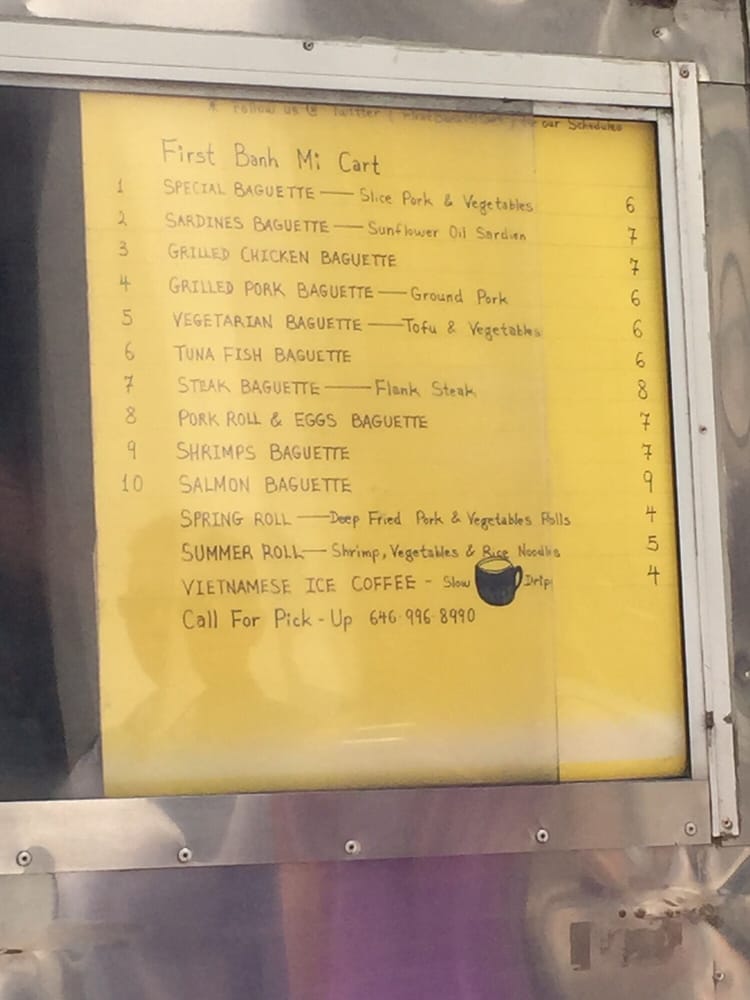 * Follow us @ Twitter ( for our Schedules
First Banh Mi Cart
1 SPECIAL BAGUETTE — Slice Pork & Vegetables 6
2 SARDINES BAGUETTE — Sunflower Oil Sardien 7
3 GRILLED CHICKEN BAGUETTE 7
4 GRILLED PORK BAGUETTE — Ground Pork 6
5 VEGETARIAN BAGUETTE — Tofu & Vegetables 6
6 TUNA FISH BAGUETTE 6
7 STEAK BAGUETTE — Flank Steak 8
8 PORK ROLL & EGGS BAGUETTE 7
9 SHRIMPS BAGUETTE 7
10 SALMON BAGUETTE 9
SPRING ROLL — Deep Fried Pork & Vegetables Rolls 4
SUMMER ROLL — Shrimp, Vegetables & Rice Noodles 5
VIETNAMESE ICE COFFEE - Slow Drip 4
Call For Pick-Up 646-996-8990